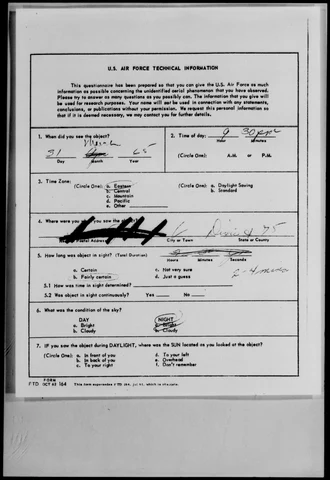 U.S. AIR FORCE TECHNICAL INFORMATION
This questionnaire has been prepared so that you can give the U.S. Air Force as much
information as possible concerning the unidentified aerial phenomenon that you have observed.
Please try to answer as many questions as you possibly can. The information that you give will
be used for research purposes. Your name will not be used in connection with any statements,
conclusions, or publications without your permission. We request this personal information so
that if it is deemed necessary, we may contact you for further details.
1. When did you see the object?
March
31 65
Day Month Year
2. Time of day: 9 30 pm
Hour Minutes
(Circle One): A.M. or P.M.
3. Time Zone:
(Circle One): a. Eastern
b. Central
c. Mountain
d. Pacific
e. Other
(Circle One): a. Daylight Saving
b. Standard
4. Where were you you saw the object?
Postal Address City or Town State or County
5. How long was object in sight? (Total Duration)
Hours Minutes Seconds
a. Certain c. Not very sure
b. Fairly certain d. Just a guess
5.1 How was time in sight determined?
5.2 Was object in sight continuously? Yes No
6. What was the condition of the sky?
DAY NIGHT
a. Bright a. Bright
b. Cloudy b. Cloudy
7. IF you saw the object during DAYLIGHT, where was the SUN located as you looked at the object?
(Circle One): a. In front of you d. To your left
b. In back of you e. Overhead
c. To your right f. Don't remember
FORM
FTD OCT 62 164 This form supersedes FTD 164, Jul 61, which is obsolete.